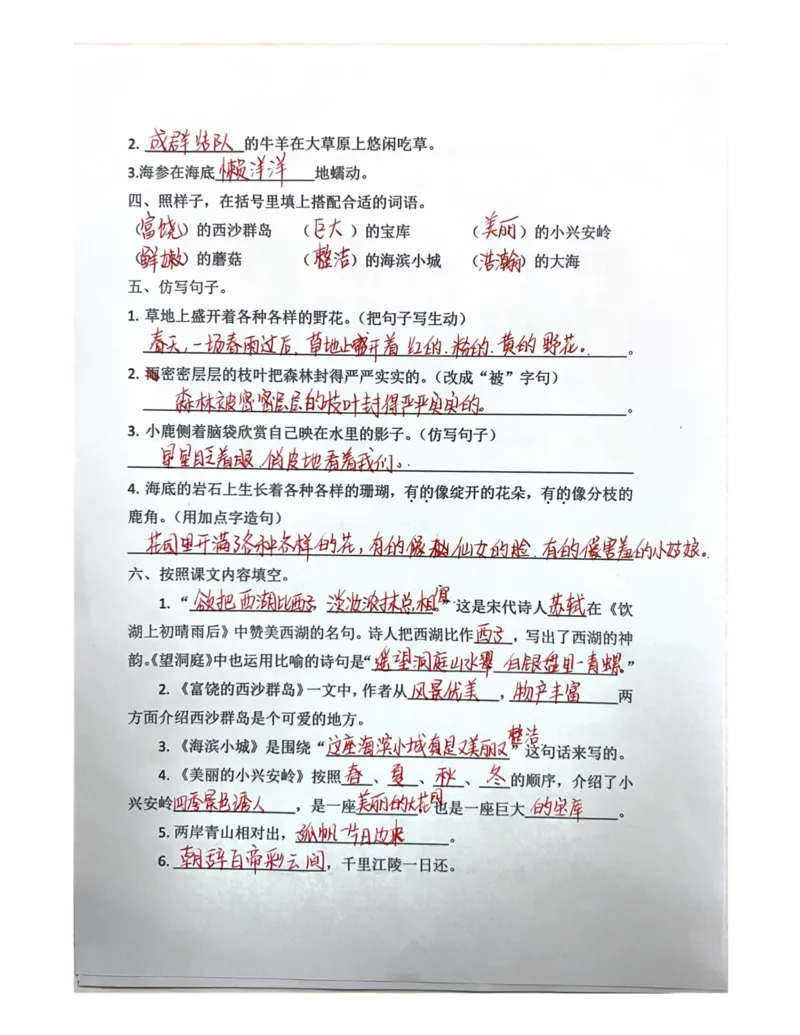 2. 成群结队的牛羊在大草原上悠闲吃草。
3.海参在海底懒洋洋地蠕动。
四、照样子，在括号里填上搭配合适的词语。
（富饶）的西沙群岛 （巨大）的宝库 （美丽）的小兴安岭
（鲜嫩）的蘑菇 （整洁）的海滨小城 （浩瀚）的大海
五、仿写句子。
1. 草地上盛开着各种各样的野花。（把句子写生动）
春天，一场春雨过后，草地上盛开着红的、粉的、黄的野花。。
2. 密密层层的枝叶把森林封得严严实实的。（改成“被”字句）
森林被密密层层的枝叶封得严严实实的。。
3. 小鹿侧着脑袋欣赏自己映在水里的影子。（仿写句子）
星星眨着眼，俏皮地看着我们。.
4. 海底的岩石上生长着各种各样的珊瑚，有的像绽开的花朵，有的像分枝的
鹿角。（用加点字造句）
花园里开满了各种各样的花，有的像仙女的脸，有的像害羞的小姑娘。
六、按照课文内容填空。
1. “欲把西湖比西子，淡妆浓抹总相宜。”这是宋代诗人苏轼在《饮
湖上初晴雨后》中赞美西湖的名句。诗人把西湖比作西子，写出了西湖的神
韵。《望洞庭》中也运用比喻的诗句是“遥望洞庭山水翠，白银盘里一青螺。”
2. 《富饶的西沙群岛》一文中，作者从风景优美，物产丰富两
方面介绍西沙群岛是个可爱的地方。
3. 《海滨小城》是围绕“这座海滨小城真是又美丽又整洁”这句话来写的。
4. 《美丽的小兴安岭》按照春、夏、秋、冬的顺序，介绍了小
兴安岭四季景色诱人，是一座美丽的大花园也是一座巨大的宝库。
5. 两岸青山相对出，孤帆一片日边来。
6. 朝辞白帝彩云间，千里江陵一日还。